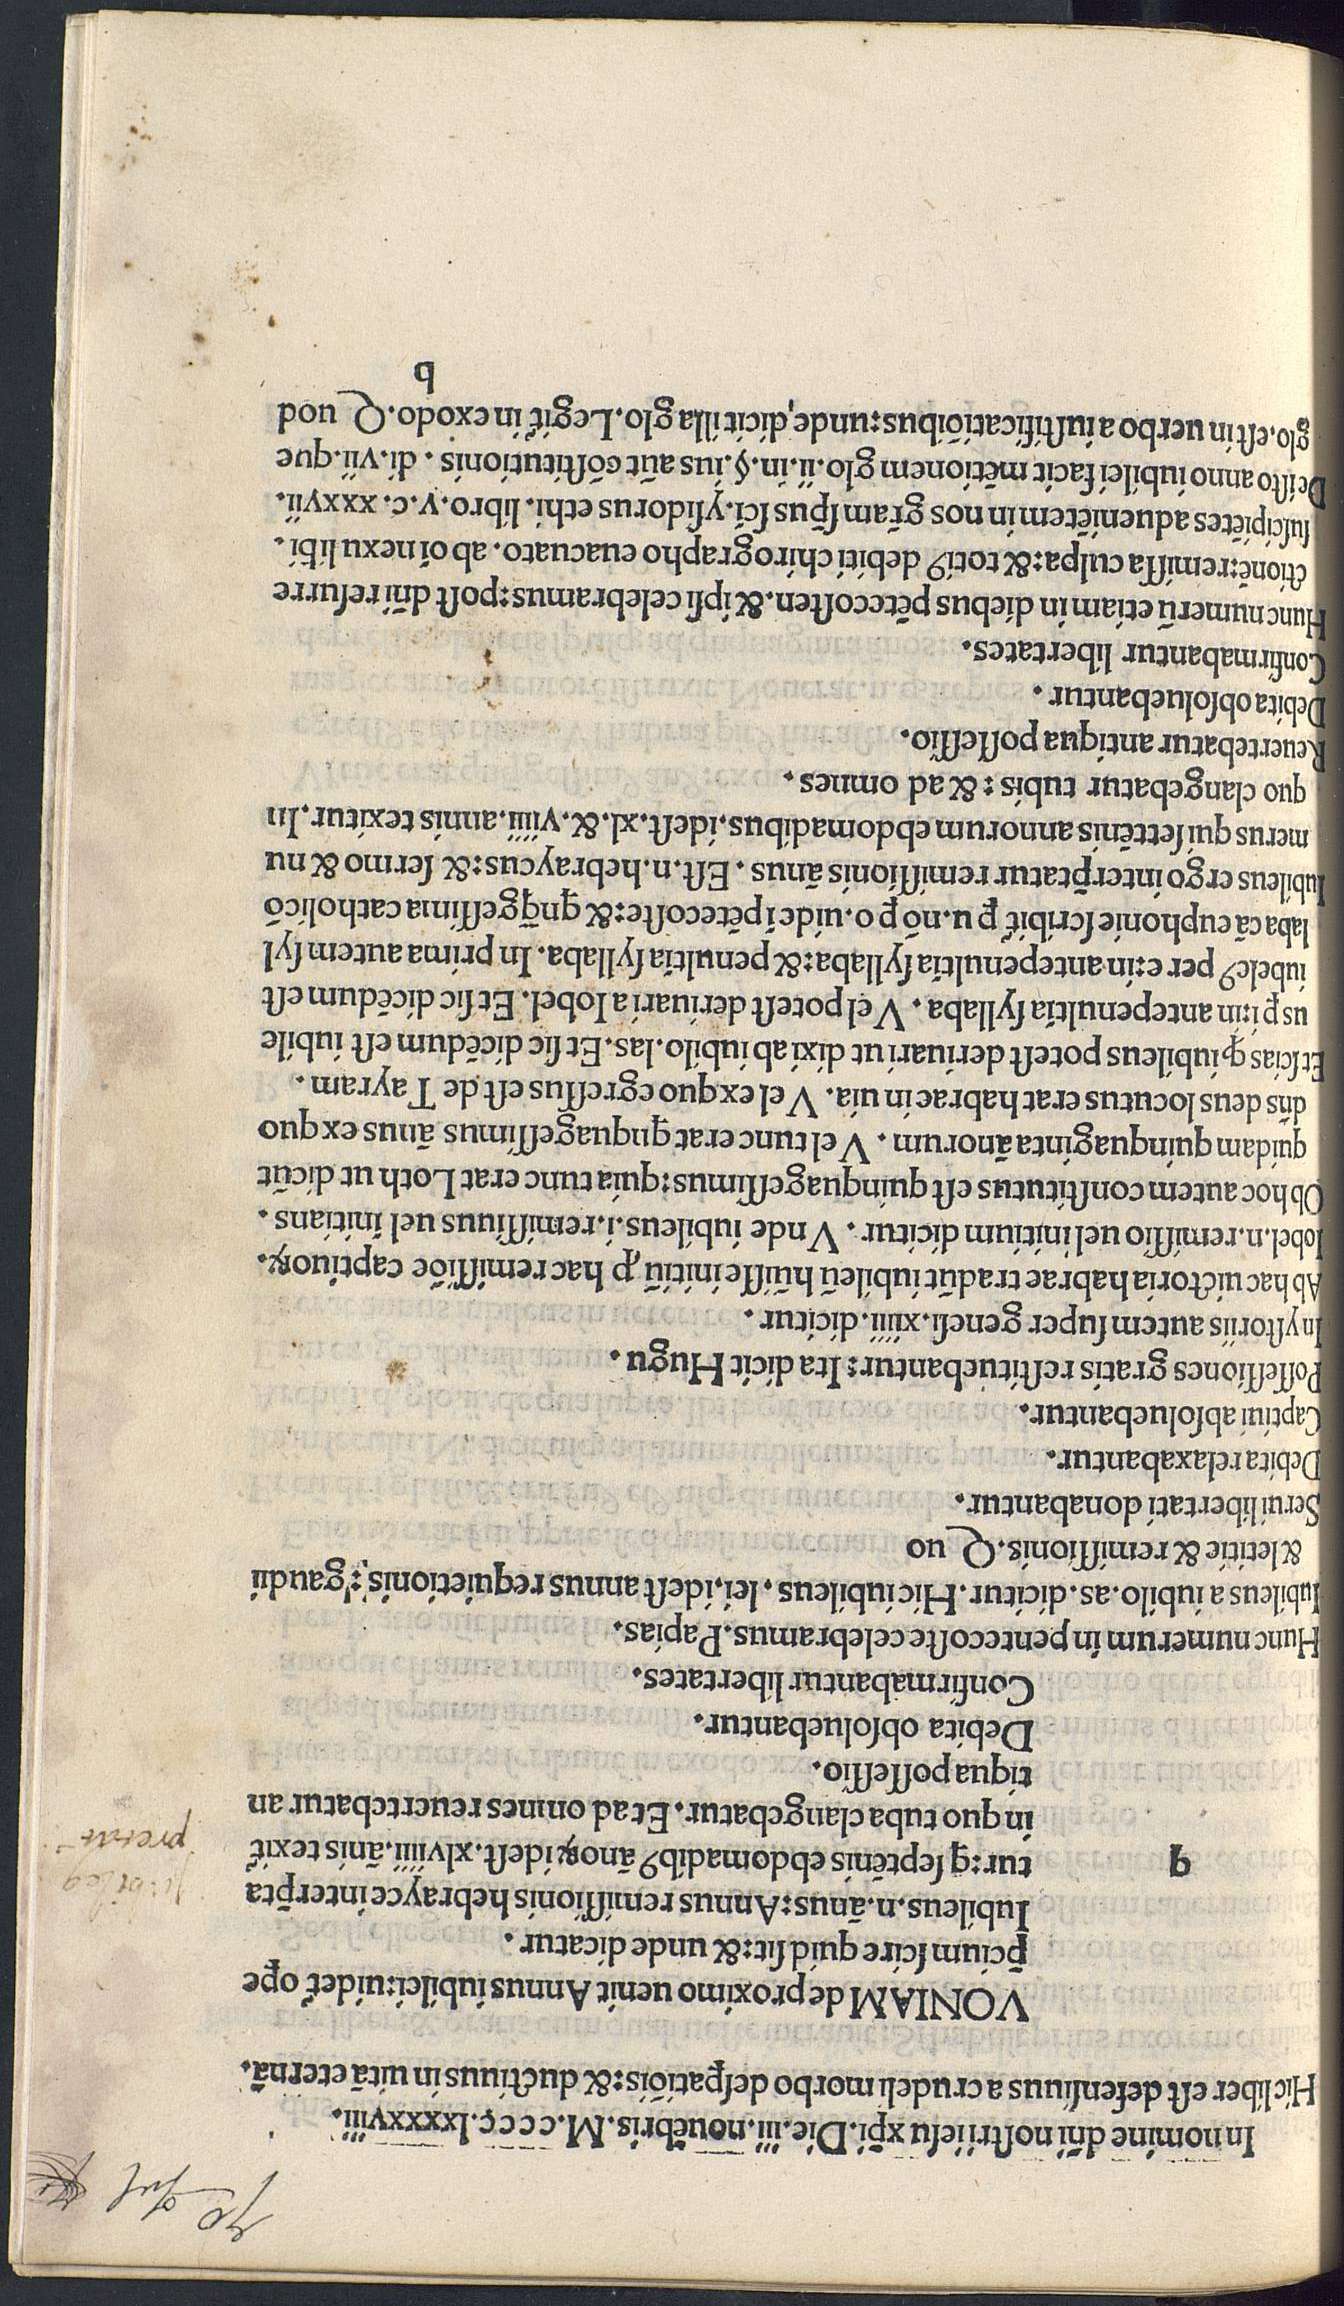 In nomine dñi nostri iesu xp̄i. Die. iii. nouēbris. M.cccc.lxxxxviii.
Hic liber est defensiuus a crudeli morbo desꝑatiōis: & ductiuus in uitā eternā.
VONIAM de proximo uenit Annus iubilei: uideť ope
p̄cium scire quid sit: & unde dicatur.
q
Iubileus .n. ānus: Annus remissionis hebrayce interp̄ta
tur: q̄ septēnis ebdomadibꝰ ānoꝝ idest. xlviiii. ānis texiť
in quo tuba clangebatur. Et ad omnes reuertebatur an
tiqua possessio.
Debita obsoluebantur.
Confirmabantur libertates.
Hunc numerum in pentecoste celebramus. Papias.
Iubileus a iubilo. as. dicitur. Hic iubileus, lei, idest annus requietionis: gaudii
& letitie & remissionis. Q uo
Serui libertati donabantur.
Debita relaxabantur.
Captiui absoluebantur.
Possessiones gratis restituebantur: Ita dicit Hugu.
In ystoriis autem super genesi. xiiii. dicitur.
Ab hac uictoria habrae tradūt iubileū hūisse initiū, ꝓ hac remissiōe captiuoꝝ.
Iobel. n. remissio uel initium dicitur. Vnde iubileus .i. remissiuus uel initians.
Ob hoc autem constitutus est quinquagessimus: quia tunc erat Loth ut dicūt
quidam quinquaginta ānorum. Vel tunc erat qnquagessimus ānus ex quo
dñs deus locutus erat habrae in uia. Vel ex quo egressus est de Tayram.
Et scias ꝙ iubileus potest deriuari ut dixi ab iubilo. las. Et sic dicēdum est iubile
us ꝑ i: in antepenultīa syllaba. Vel potest deriuari a Iobel. Et sic dicēdum est
iubeleꝰ per e: in antepenultīa syllaba: & penultīa syllaba. In prima autem syl
laba cā euphonie scribiť ꝑ u. nō ꝑ o. uidei pētecoste: & qnqgessima catholicō
Iubileus ergo interp̄tatur remissionis ānus. Est. n. hebraycus: & sermo & nu
merus qui settēnis annorum ebdomadibus. idest. xl. & .viiii. annis texitur. In
quo clangebatur tubis: & ad omnes.
Reuertebatur antiqua possessio.
Debita obsoluebantur.
Confirmabantur libertates.
Hunc numerū etiam in diebus pētecosten. & ipsi celebramus: post dñi resurre
ctionē: remissa culpa: & totiꝰ debiti chirographo euacuato. ab oī nexu libi.
suscipiētes aduenietem in nos grām sp̄us scī. ysidorus ethi. libro. v. c. xxxvii.
De isto anno iubilei facit mētionem glo. ii. in. §. ius aūt cōstitutionis. di. vii. que
glo. est in uerbo a iustificatiōibus: unde, dicit illa glo. Legiť in exodo. Q uod
b